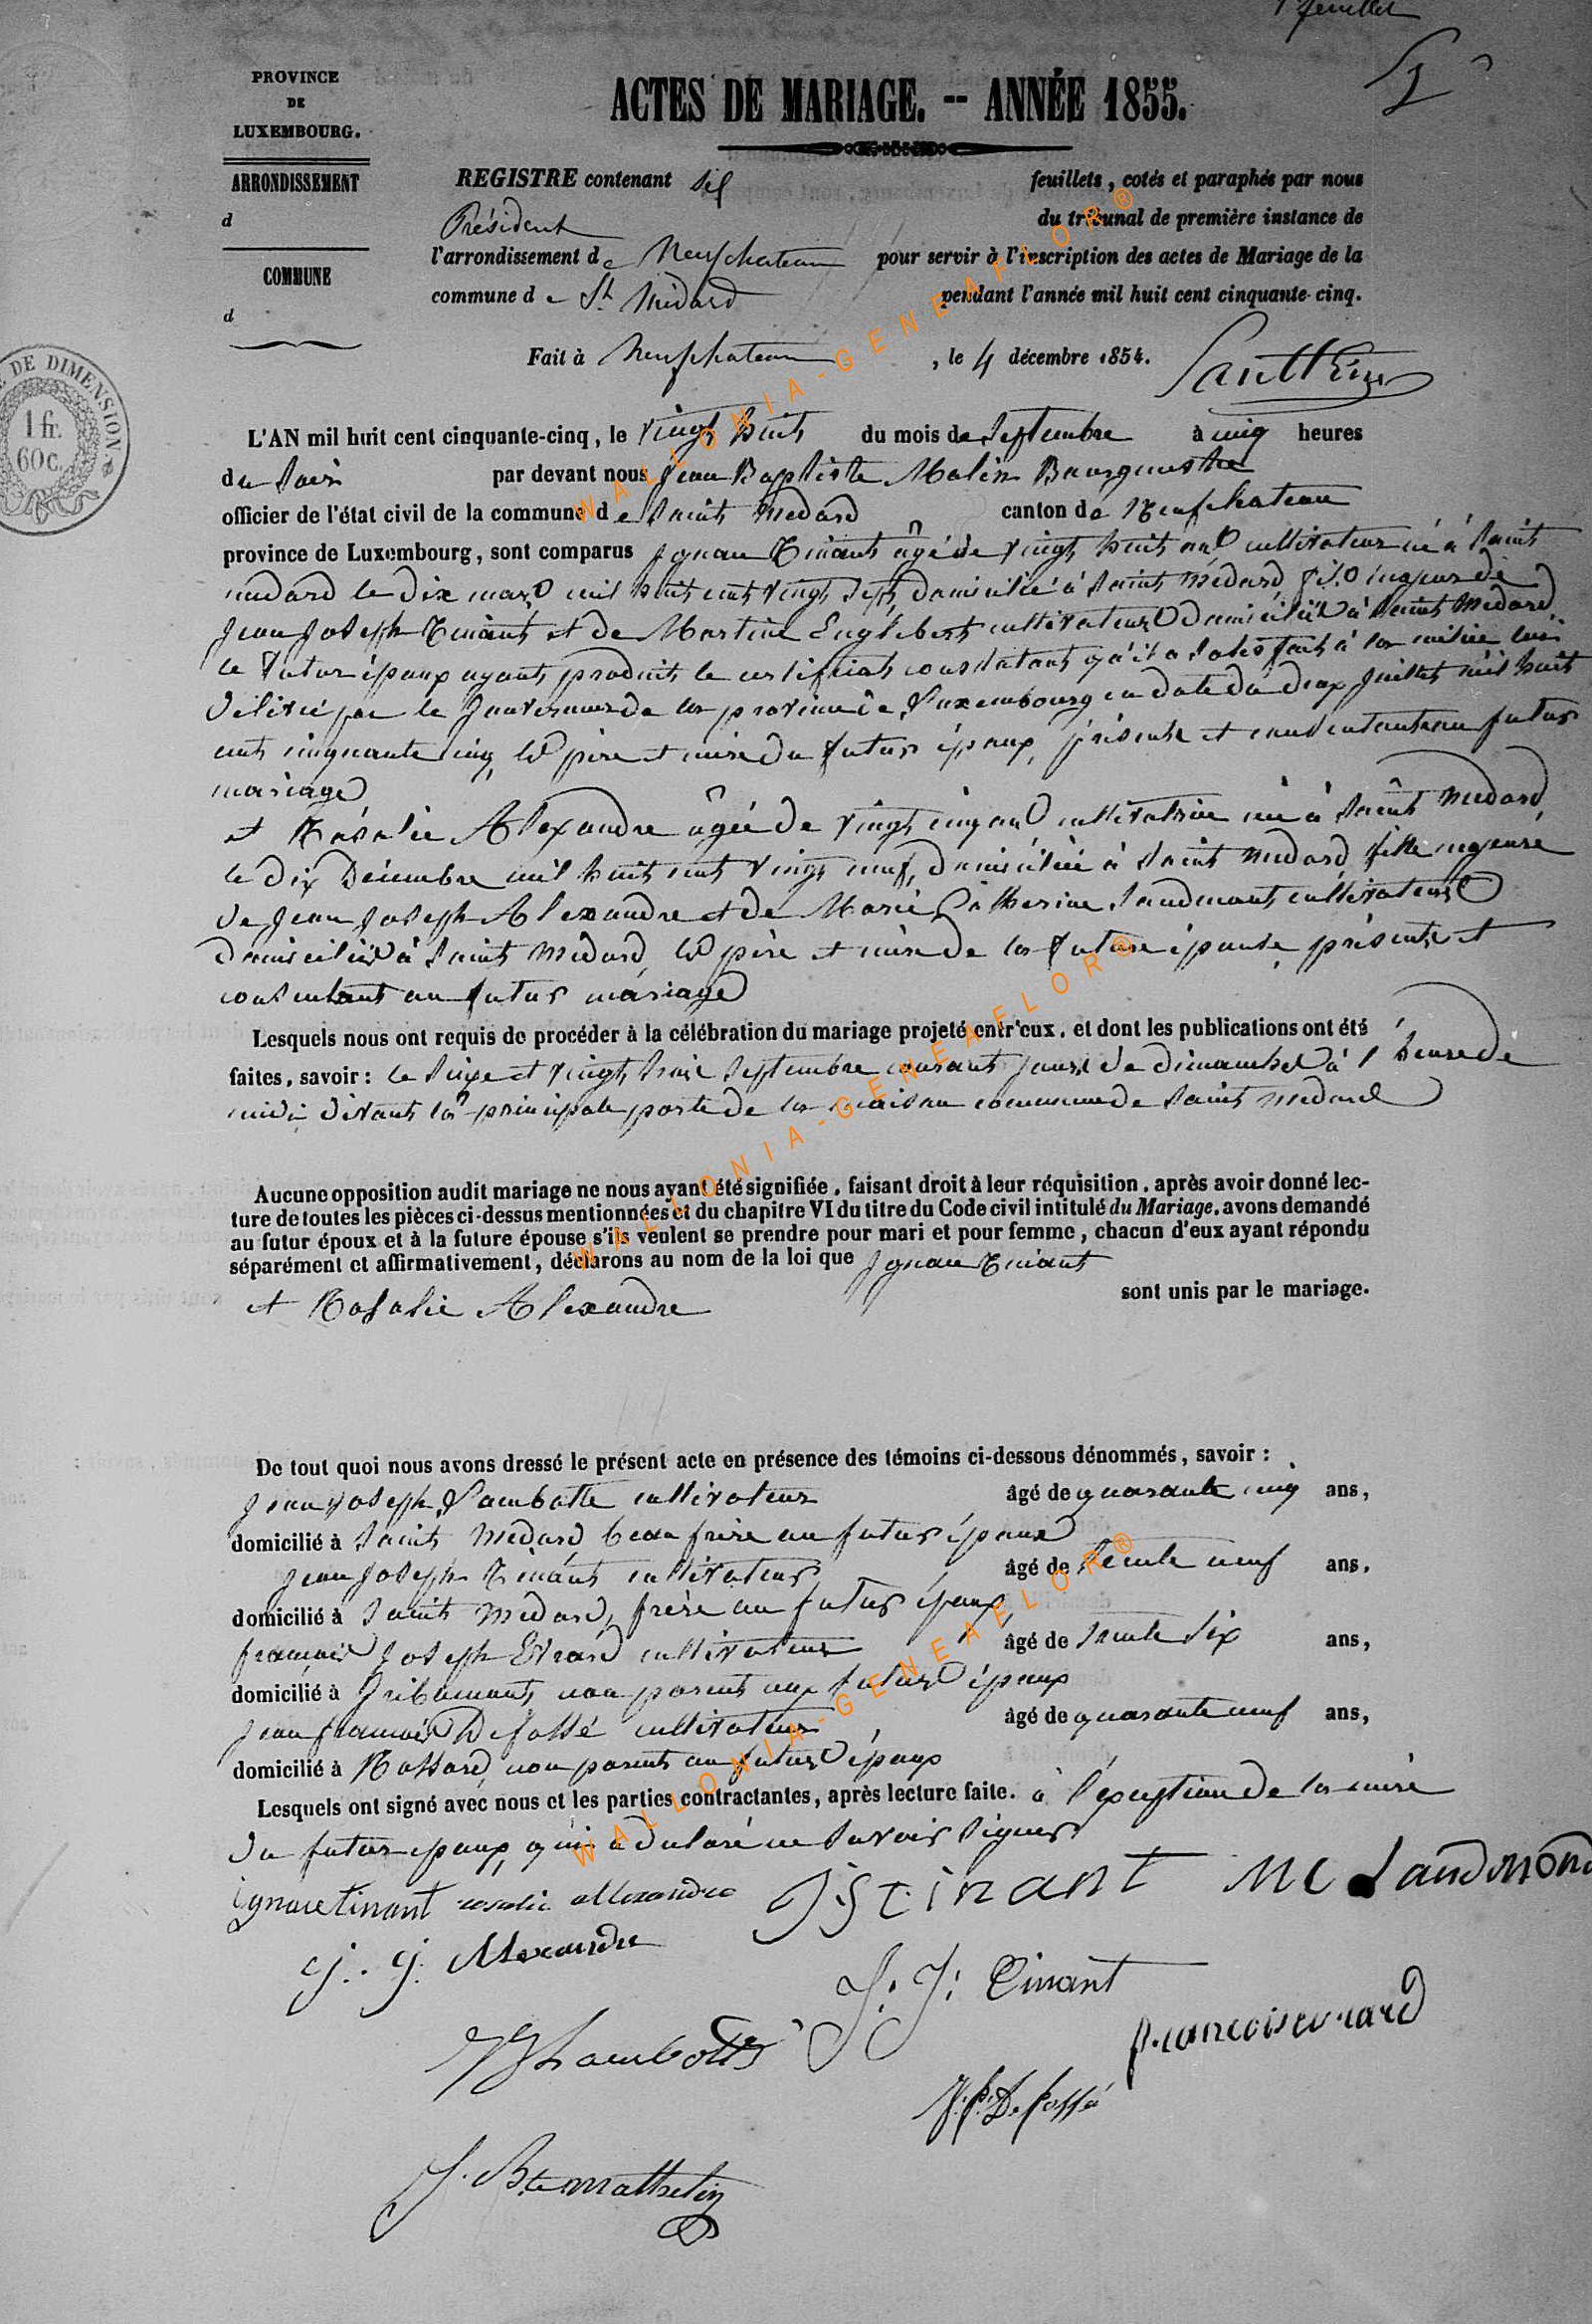 1er feuillet
PROVINCE
DE
LUXEMBOURG.
ARRONDISSEMENT
d
COMMUNE
d
DE DIMENSION.
1 fr.
60 c.
ACTES DE MARIAGE. -- ANNÉE 1855.
REGISTRE contenant six feuillets, cotés et paraphés par nous
Président du tribunal de première instance de
l'arrondissement de Neufchateau pour servir à l'inscription des actes de Mariage de la
commune de St Médard pendant l'année mil huit cent cinquante-cinq.
Fait à Neufchateau, le 4 décembre 1854.
L'AN mil huit cent cinquante-cinq, le vingt huit du mois de Septembre à cinq heures
du soir par devant nous Jean Baptiste Bourguestre
officier de l'état civil de la commune de Saint Medard canton de Neufchateau
province de Luxembourg, sont comparus Ignace Tinant âgé de vingt huit ans cultivateur né à Saint
médard le dix mars mil huit cent vingt sept, domicilié à Saint Médard, fils majeur de
Jean Joseph Tinant et de Martine Englebert cultivateurs domiciliés à Saint Médard
le futur époux ayant produit le certificat constatant qu'il a satisfait à la milice lui
délivré par le Gouverneur de la province de Luxembourg en date du deux Juillet mil huit
cent cinquante cinq, les père et mère du futur époux, présents et consentants au futur
mariage
et Rosalie Alexandre âgée de vingt cinq ans cultivatrice née à Saint Medard
le dix Décembre mil huit cent vingt neuf, domiciliée à Saint Medard fille majeure
de Jean Joseph Alexandre et de Marie Catherine Landmont cultivateurs
domiciliés à Saint Médard, les père et mère de la future épouse, présents et
consentant au futur mariage
Lesquels nous ont requis de procéder à la célébration du mariage projeté entr'eux, et dont les publications ont été
faites, savoir : le seize et vingt trois Septembre courant jours de dimanche à l'heure de
midi devant la principale porte de la maison commune de Saint Medard
Aucune opposition audit mariage ne nous ayant été signifiée, faisant droit à leur réquisition, après avoir donné lec-
ture de toutes les pièces ci-dessus mentionnées et du chapitre VI du titre du Code civil intitulé du Mariage, avons demandé
au futur époux et à la future épouse s'ils veulent se prendre pour mari et pour femme, chacun d'eux ayant répondu
séparément et affirmativement, déclarons au nom de la loi que Ignace Tinant
et Rosalie Alexandre sont unis par le mariage.
De tout quoi nous avons dressé le présent acte en présence des témoins ci-dessous dénommés, savoir :
Jean Joseph Lambotte cultivateur âgé de quarante cinq ans,
domicilié à Saint Médard beau frère au futur époux
Jean Joseph Tinant cultivateur âgé de trente neuf ans,
domicilié à Saint Médard, frère au futur époux,
françois Joseph Evrard cultivateur âgé de trente six ans,
domicilié à Gribomont non parent aux futurs époux
Jean françois Defossé cultivateur âgé de quarante neuf ans,
domicilié à Rossard, non parent au futurs époux
Lesquels ont signé avec nous et les parties contractantes, après lecture faite. à l'exception de la mère
du futur époux, qui a déclaré ne savoir signer
ignace tinant rosalie allexandre J J tinant M C Landmond
J. J. Alexandre
J. J. Tinant
Lambotte
francois evrard
J. f. Defossé
J. Bte mathelin
WALLONIA-GENEAFLOR®
WALLONIA-GENEAFLOR®
WALLONIA-GENEAFLOR®